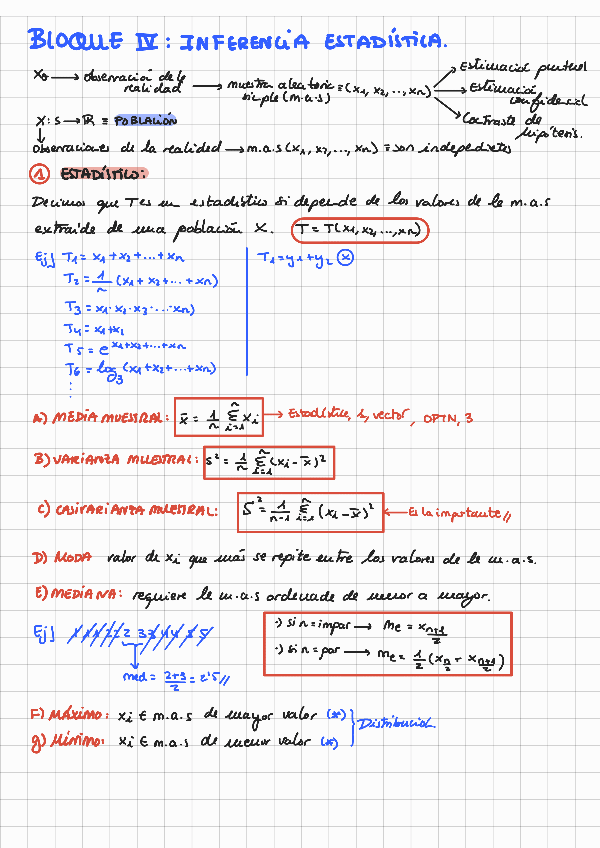 BLOQUE IV: INFERENCIA ESTADÍSTICA.
X₀ → observación de la realidad → muestra aleatoria simple (m.a.s) ≡ (x₁, x₂, ..., xₙ)
→ Estimació puntual
→ Estimació confidencial
→ Contraste de hipótesis.
X: S → ℝ ≡ POBLACIÓN
↓
Observaciones de la realidad → m.a.s (x₁, x₂, ..., xₙ) ≡ son independietes
① ESTADÍSTICO:
Decimos que T es un estadístico si depende de los valores de la m.a.s
extraída de una población X. T = T(x₁, x₂, ..., xₙ)
Ej) T₁ = x₁ + x₂ + ... + xₙ
T₂ = 1/n (x₁ + x₂ + ... + xₙ)
T₃ = x₁ · x₂ · x₃ · ... · xₙ
T₄ = x₁ + x₂
T₅ = e^(x₁+x₂+...+xₙ)
T₆ = log₃ (x₁ + x₂ + ... + xₙ)
⋮
T₁ = y₁ + y₂ ⓧ
A) MEDIA MUESTRAL: x̄ = 1/n Σⁿᵢ₌₁ xᵢ → Estadístico, 1, vector, OPTN, 3
B) VARIANZA MUESTRAL: s² = 1/n Σⁿᵢ₌₁ (xᵢ - x̄)²
C) CASIVARIANZA MUESTRAL: S² = 1/(n-1) Σⁿᵢ₌₁ (xᵢ - x̄)² ← Es la importante //
D) MODA valor de xᵢ que más se repite entre los valores de la m.a.s.
E) MEDIANA: requiere la m.a.s ordenada de menor a mayor.
Ej) 1 1 1 2 2 2 3 3 3 4 4 5 5
↓
med = (2+3)/2 = 2'5 //
·) si n = impar → Me = x₍ₙ₊₁₎/₂
·) si n = par → Me = 1/2 (xₙ/₂ + x₍ₙ₊₁₎/₂)
F) MÁXIMO: xᵢ ∈ m.a.s de mayor valor (*)
G) MÍNIMO: xᵢ ∈ m.a.s de menor valor (*)
} Distribució